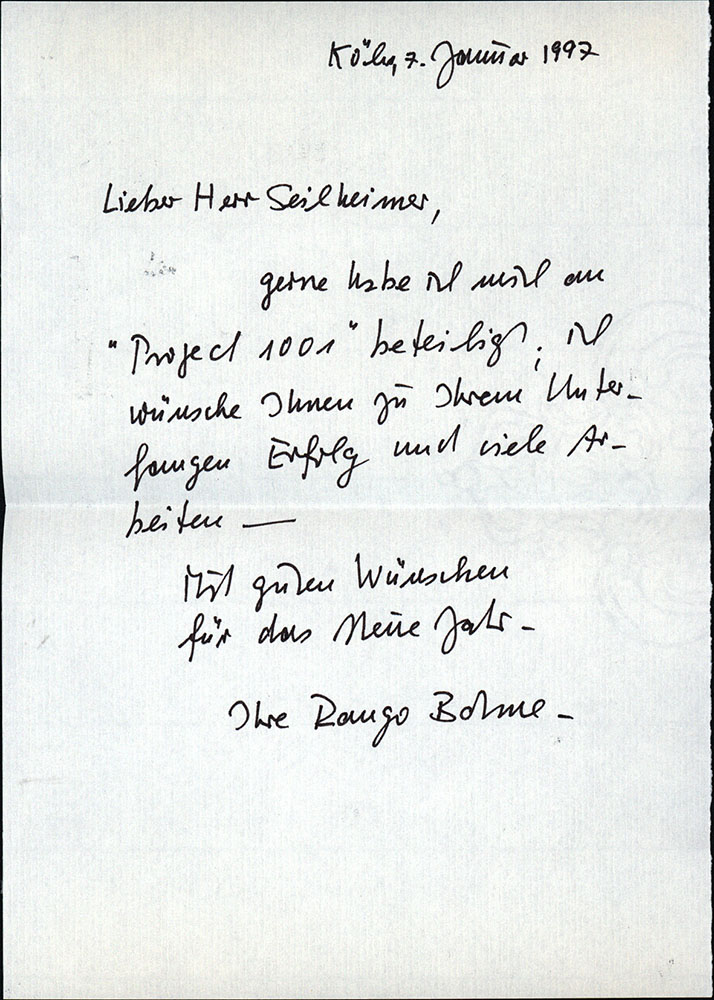 Köln, 7. Januar 1997
Lieber Herr Seilheimer,
gerne habe ich mich an
"Project 1001" beteiligt; ich
wünsche Ihnen zu Ihrem Unter-
fangen Erfolg und viele Ar-
beiten —
Mit guten Wünschen
für das Neue Jahr -
Ihre Rango Bohne -